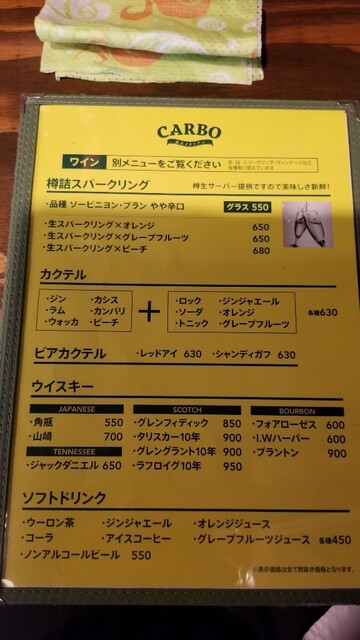 CARBO
ワイン 別メニューをご覧ください
樽詰スパークリング 樽生サーバー提供ですので美味しさ新鮮!
・品種 ソービニヨン・ブラン やや辛口 グラス 550
・生スパークリング×オレンジ 650
・生スパークリング×グレープフルーツ 650
・生スパークリング×ピーチ 680
カクテル
・ジン ・カシス + ・ロック ・ジンジャエール
・ラム ・カンパリ ・ソーダ ・オレンジ 各種630
・ウォッカ ・ピーチ ・トニック ・グレープフルーツ
ビアカクテル ・レッドアイ 630 ・シャンディガフ 630
ウイスキー
JAPANESE SCOTCH BOURBON
・角瓶 550 ・グレンフィディック 850 ・フォアローゼス 600
・山崎 700 ・タリスカー10年 900 ・I.Wハーパー 600
TENNESSEE ・グレングラント10年 900 ・ブラントン 900
・ジャックダニエル 650 ・ラフロイグ10年 950
ソフトドリンク
・ウーロン茶 ・ジンジャエール ・オレンジジュース
・コーラ ・アイスコーヒー ・グレープフルーツジュース 各種450
・ノンアルコールビール 550
※表示価格は全て税抜き価格となります。